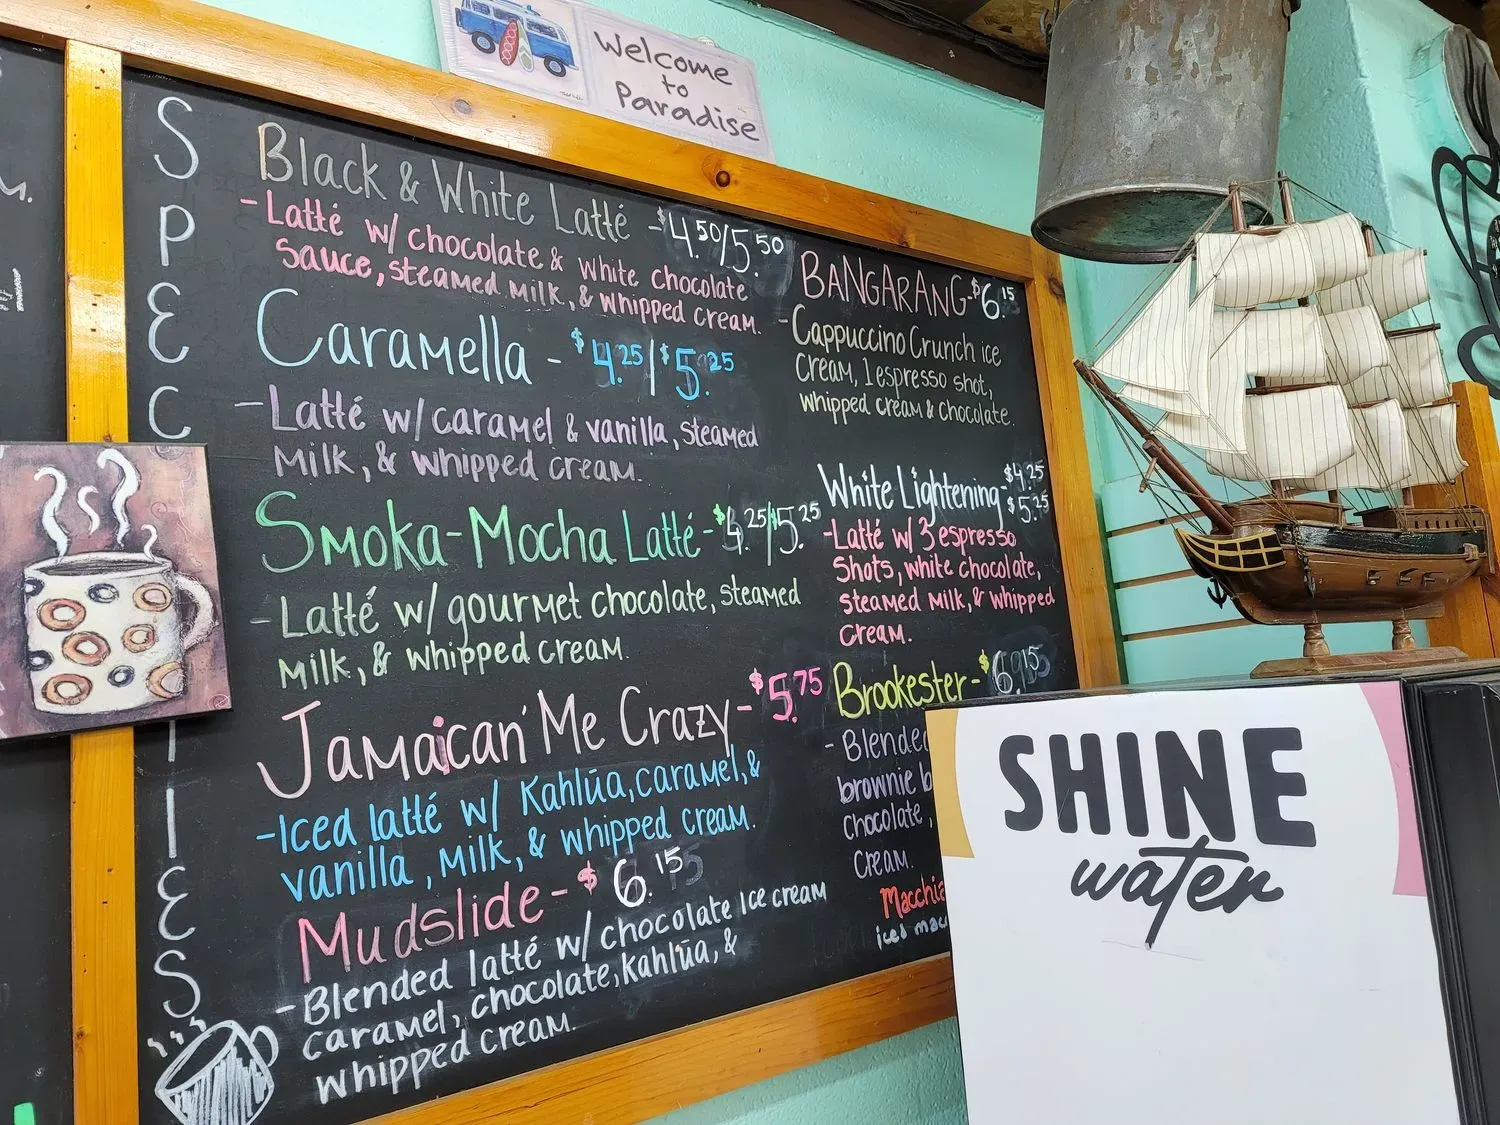 Welcome
to
Paradise
SPECIALTIES
Black & White Latté - $4.50/5.50
- Latté w/ chocolate & white chocolate
sauce, steamed milk, & whipped cream.
Caramella - $4.25/$5.25
- Latté w/ caramel & vanilla, steamed
milk, & whipped cream.
Smoka-Mocha Latté - $4.25/$5.25
- Latté w/ gourmet chocolate, steamed
milk, & whipped cream.
Jamaican' Me Crazy - $5.75
- Iced latté w/ Kahlūa, caramel, &
vanilla, milk, & whipped cream.
Mudslide - $6.15
- Blended latté w/ chocolate ice cream
caramel, chocolate, kahlūa, &
whipped cream.
BANGARANG - $6.15
- Cappuccino Crunch ice
cream, 1 espresso shot,
whipped cream & chocolate.
White Lightening - $4.25
$5.25
- Latté w/ 3 espresso
shots, white chocolate,
steamed milk, & whipped
cream.
Brookester - $6.15
- Blended
brownie b
chocolate,
cream.
Macchia
iced mac
SHINE
water